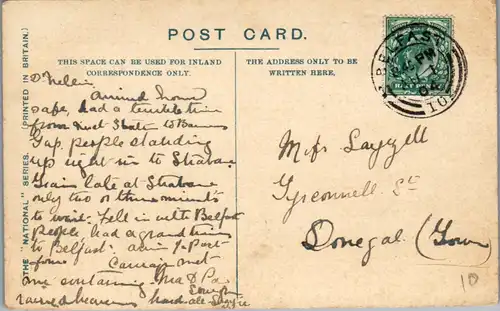 POST CARD.
THIS SPACE CAN BE USED FOR INLAND
CORRESPONDENCE ONLY.
THE ADDRESS ONLY TO BE
WRITTEN HERE.
THE "NATIONAL" SERIES. (PRINTED IN BRITAIN.)
BELFAST
PM
04
Dr Nellie
Arrived home
safe, had a terrible time
from to Barnes
Gap, people standing
up right us to Strabane
Train late at Strabane
only two or three minutes
to wait. Fell in with Belfast
people, had a grand time
to Belfast. am
Carriage met
me containing Ma & Pa
raised heavens
Miss
Tyrconnell St
Donegal (Town)
10